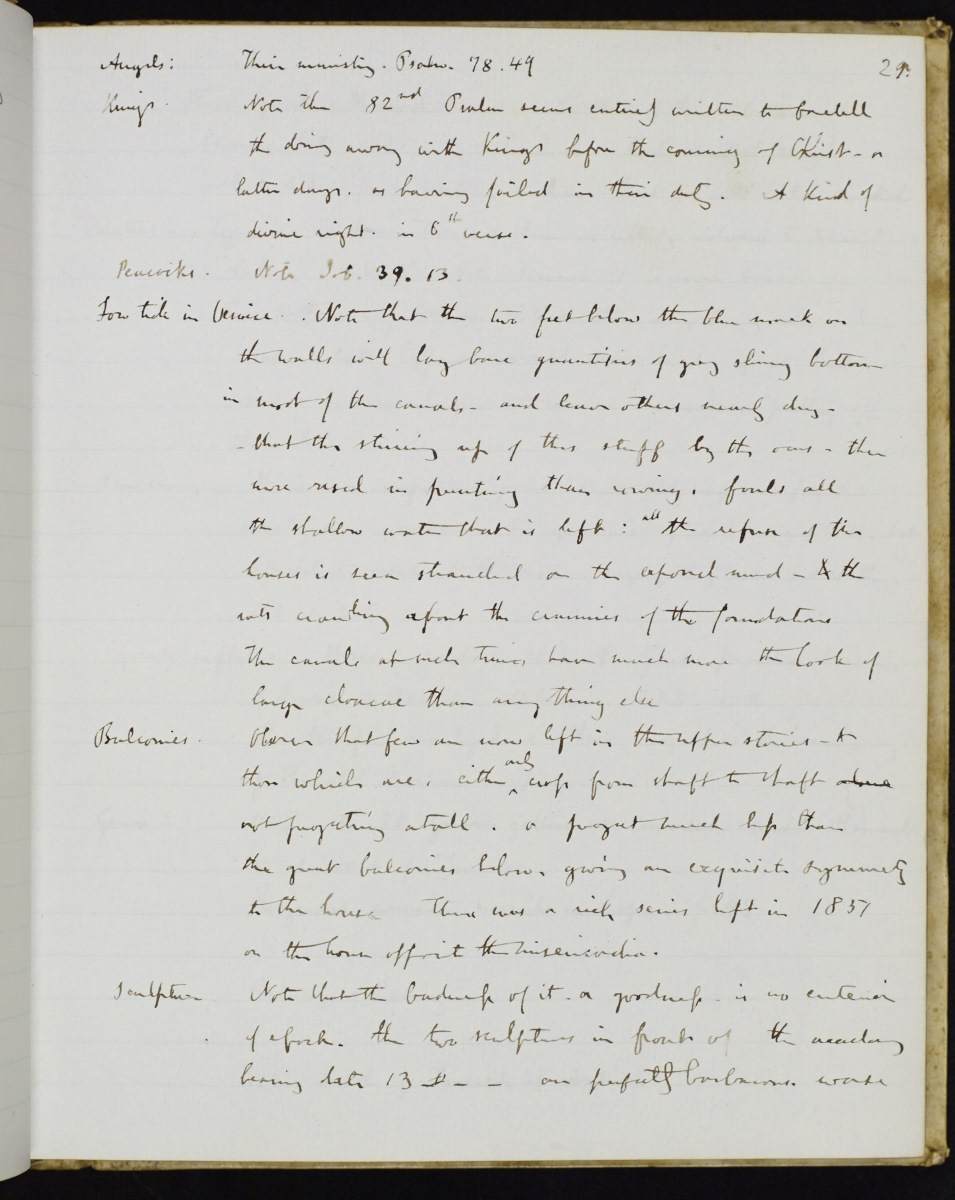 29.
Angels: Their ministry. Psalm. 78.49
Kings. Note the 82nd Psalm seems entirely written to foretell
the doing away with Kings before the coming of Christ - or
latter days. as having failed in their duty. A kind of
divine right. in 6th verse.
Peacocks. Note Job. 39. 13.
Low tide in Venice. . Note that the two feet below the blue mark on
the walls will lay bare quantities of grey slimy bottom
in most of the canals - and leave others nearly dry -
- that the stirring up of this stuff by the oars - then
more used in punting than rowing, fouls all
the shallow water that is left: all the refuse of the
houses is seen stranded on the exposed mud - & the
rats crawling about the crannies of the foundations
The canals at such times have much more the look of
large cloacae than any thing else
Balconies. Observe that few are now left in the upper stories - &
those which are, either only cross from shaft to shaft
not projecting at all. or project much less than
the great balconies below, giving an exquisite symmetry
to the house There was a rich series left in 1851
on the house opposite the misericordia.
Sculpture Note that the badness of it - or goodness - is no criterion
of epoch. the two sculptures in front of the academy
bearing date 13 - - are perfectly barbarous. worse